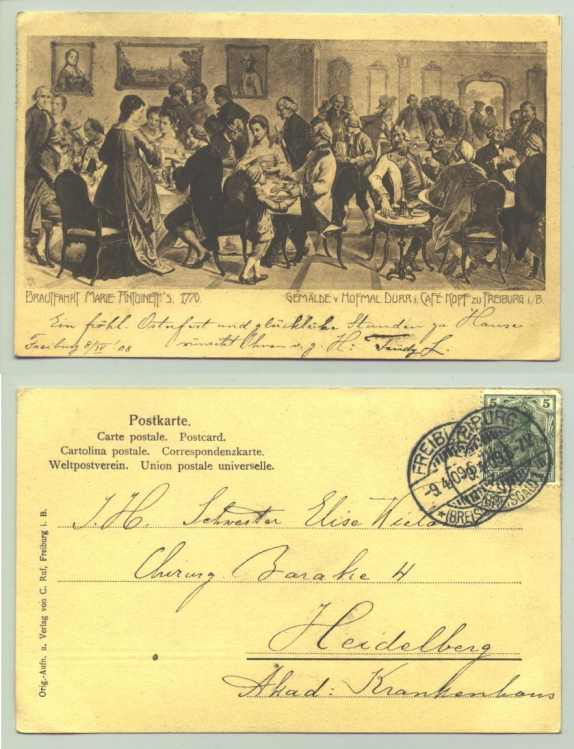 BRAUTFAHRT MARIE ANTOINETT'S. 1770. GEMÄLDE V. HOFMAL. DÜRR I. CAFÉ KOPF ZU FREIBURG I/B.
Ein fröhl. Osterfest und glückliche Stunden zu Hause
Freiburg 8/IV '08 wünscht Ihnen
Postkarte.
Carte postale. Postcard.
Cartolina postale. Correspondenzkarte.
Weltpostverein. Union postale universelle.
5 5
FREIBURG
-9.4.09
*(BREISGAU)
I. H. Schwester Elise
Chirurg. Baracke 4
Heidelberg
Akad: Krankenhaus
Orig.-Aufn. u. Verlag von C. Ruf, Freiburg i. B.